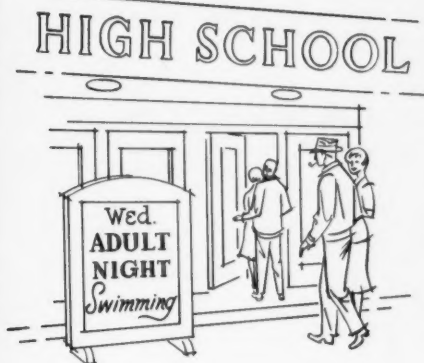 HIGH SCHOOL
Wed.
ADULT
NIGHT
Swimming